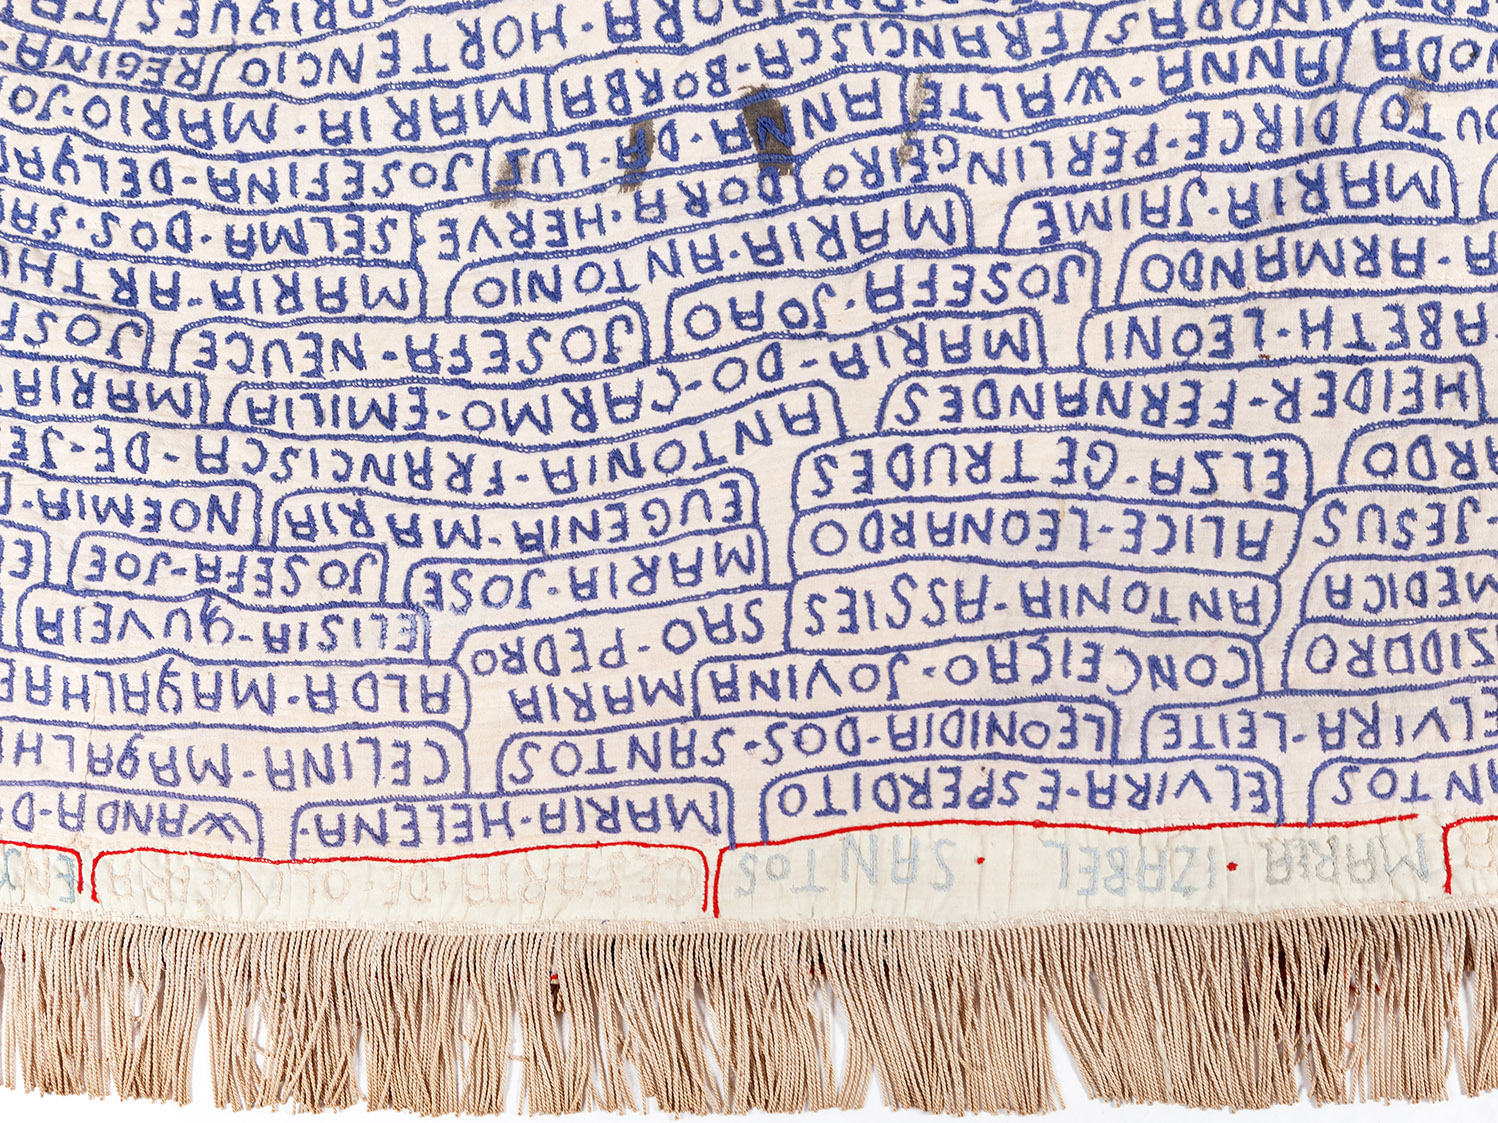 MARIA · IZABEL · SANTOS CESARIA · DE
NTOS ELVIRA-ESPERDITO MARIA·HELENA· WANDA·D
ELVIRA-LEITE LEONIDIA-DOS-SANTOS CELINA-MAGALH
ZIDDRO CONCEIÇAO-JOVINA MARIA ALDA-MAGALHAE
MEDICA ANTONIA-ASSIES SAO PEDRO ELISIA-GUVEIA
JESUS ALICE-LEONARDO MARIA-JOSE JOSEFA-JOE E
ARDO ELZA-GETRUDES EUGENIA-MARIA NOEMIA-
HEIDER-FERNANDES ANTONIA-FRANCISCA-DE-JE
ABETH-LEONI MARIA-DO-CARMO-EMILIA MARIA
A-ARMANDO JOSEFA-JOAO JOSEFA-NEUCE JOS
MARIA-JAIME MARIA-ANTONIO MARIA-ARTH
OUTO DIRCE-PERLINGEIRO DORA-HERVE SELMA-DOS-SA
NODA ANNA-WALTE ANNA-DA-LUS JOSEFINA-DELYA
FRANCISCA-BORBA MARIA-MARIO-JO
HORTENCIO REGINA